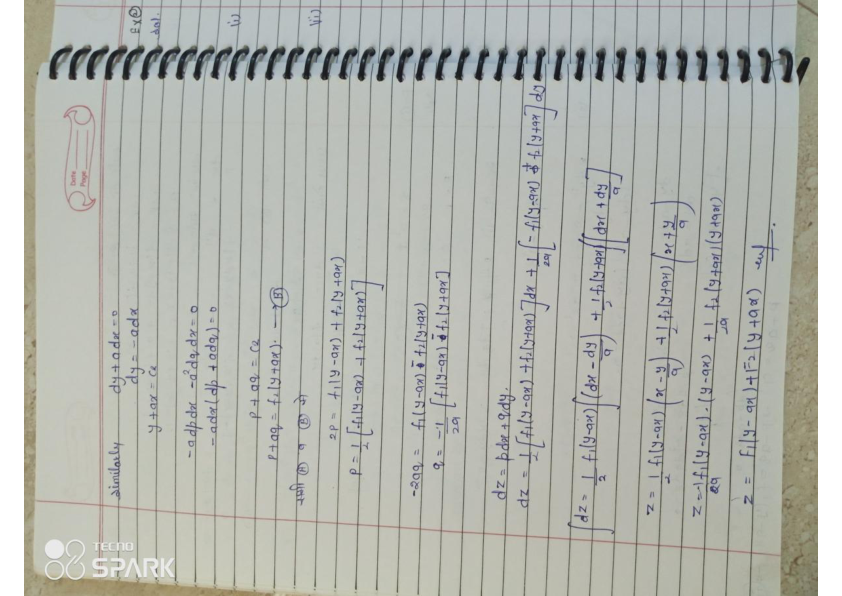 Date
Page
Similarly dy + adx = 0
dy = -adx
y + ax = c2
-adp dx - a²dq dx = 0
-adx (dp + adq) = 0
p + aq = c2
p + aq = f2(y+ax). → (B)
समी (A) व (B) से
2p = f1(y-ax) + f2(y+ax)
p = 1/2 [f1(y-ax) + f2(y+ax)]
-2aq = f1(y-ax) - f2(y+ax)
q = -1/2a [f1(y-ax) - f2(y+ax)]
dz = pdx + qdy.
dz = 1/2 [f1(y-ax) + f2(y+ax)] dx + 1/2a [-f1(y-ax) + f2(y+ax)] dy
∫dz = 1/2 f1(y-ax) ∫(dx - dy/a) + 1/2 f2(y+ax) ∫[dx + dy/a]
z = 1/2 f1(y-ax) (x - y/a) + 1/2 f2(y+ax) (x + y/a)
z = -1/2a f1(y-ax) · (y-ax) + 1/2a f2(y+ax) (y+ax)
z = F1(y-ax) + F2(y+ax)
Ex
Sol.
(i)
(ii)
TECNO
SPARK